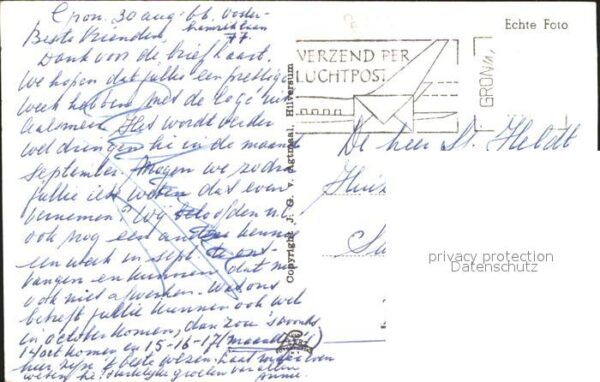 Gron. 30 aug. 66. Ooster-
hamriklaan
77.
Beste Vrienden,
Dank voor de briefkaart.
We hopen dat jullie een prettige
week hebben met de logé uit
Aalsmeer. Het wordt verder
wel dringen hè in de maand
September. Mogen we zodra
jullie iets weten dat even
vernemen? Wij beloofden nl.
ook nog een andere kennis
een week in sept. te ont-
vangen en kunnen dat nu
ook niet afwerken. Wat ons
betreft jullie kunnen ook wel
in october komen, dan zou 's avonds
14 oct komen en 15-16-17 (maandag)
hier zijn 't beste wezen. Laat maar even
weten hè? Hartelijke groeten van allen
Copyright J. G. v. Agtmaal, Hilversum
VERZEND PER
LUCHTPOST
GRONIN
Echte Foto
De heer St. Heldt
privacy protection
Datenschutz